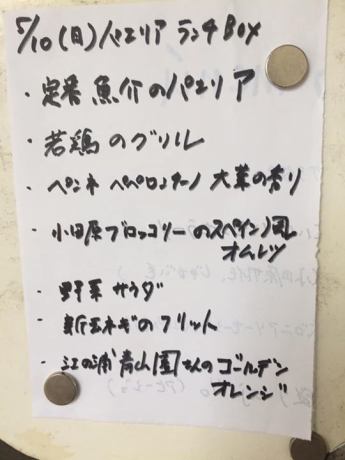 5/10(日)パエリア ランチBOX
・定番 魚介のパエリア
・若鶏のグリル
・ペンネ ペペロンチーノ 大葉の香り
・小田原ブロッコリーのスペイン風
オムレツ
・野菜サラダ
・新玉ネギのフリット
・江の浦青山園さんのゴールデン
オレンジ